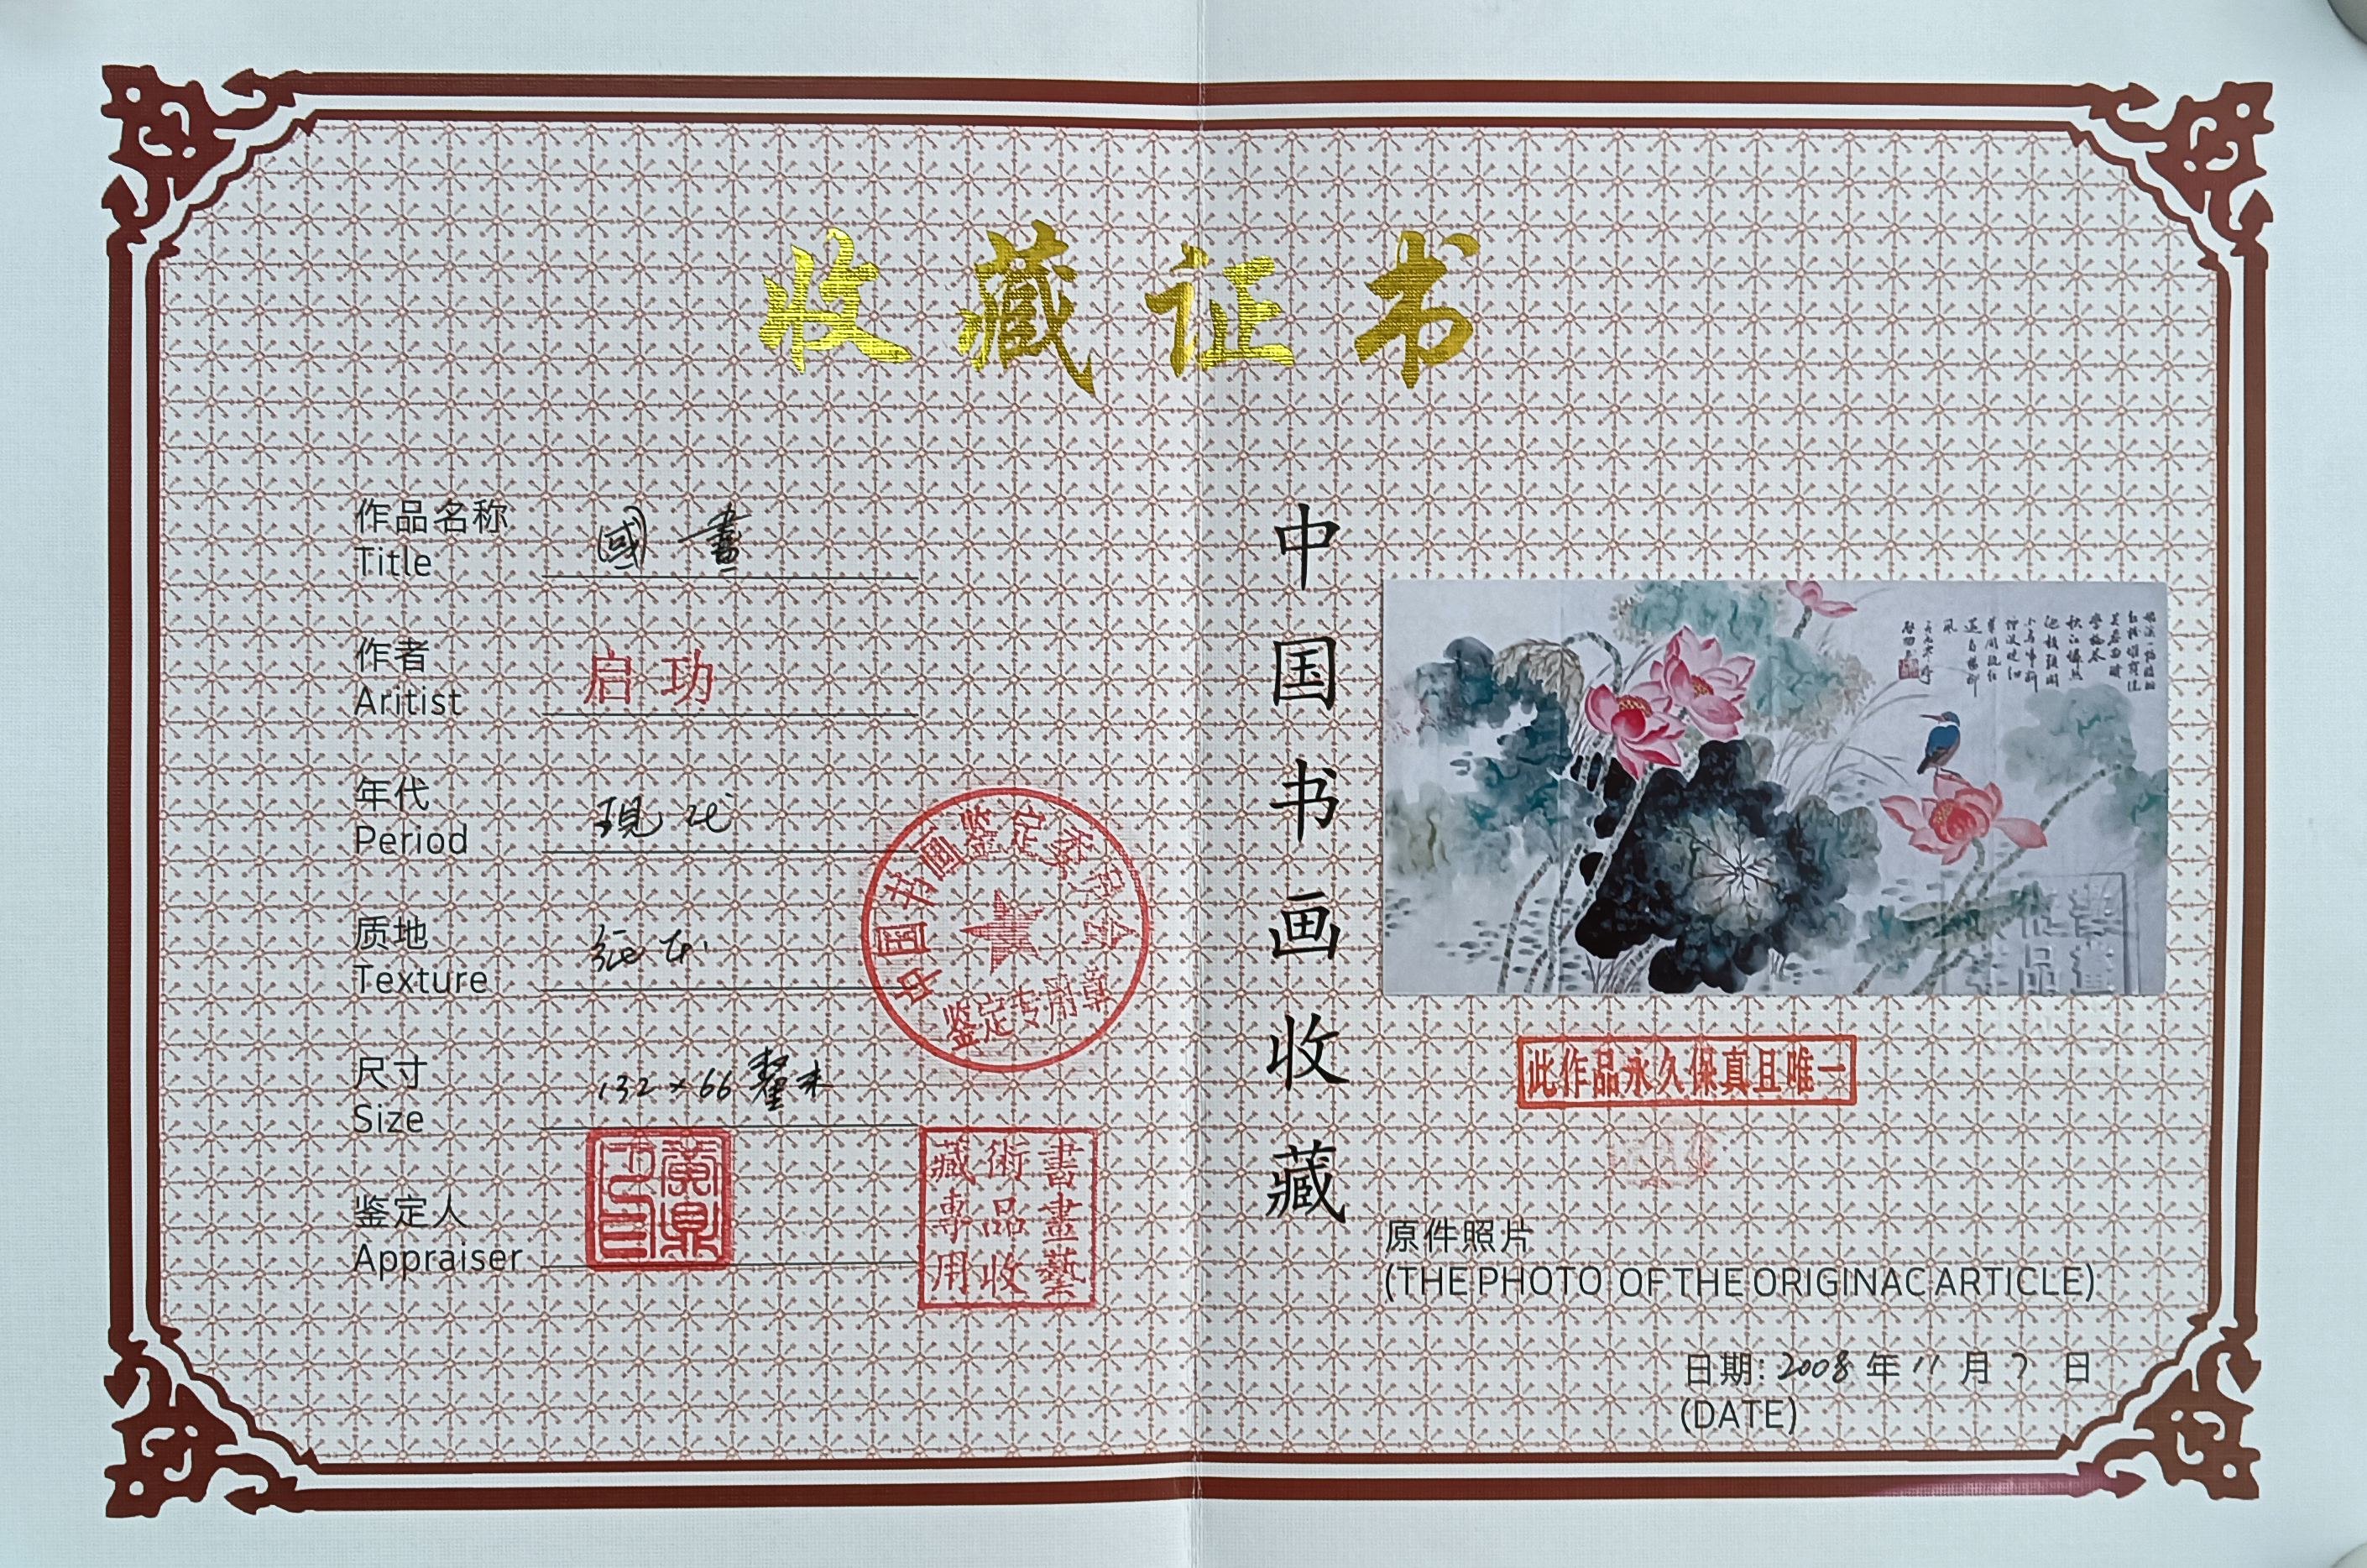 收藏证书
作品名称
Title
國畫
作者
Aritist
启功
年代
Period
現代
质地
Texture
纸本
尺寸
Size
132×66釐米
鉴定人
Appraiser
中国书画鉴定委员会
鉴定专用章
書畫藝
術品收
藏專用
中国书画收藏
此作品永久保真且唯一
原件照片
(THE PHOTO OF THE ORIGINAC ARTICLE)
日期:2008年11月7日
(DATE)